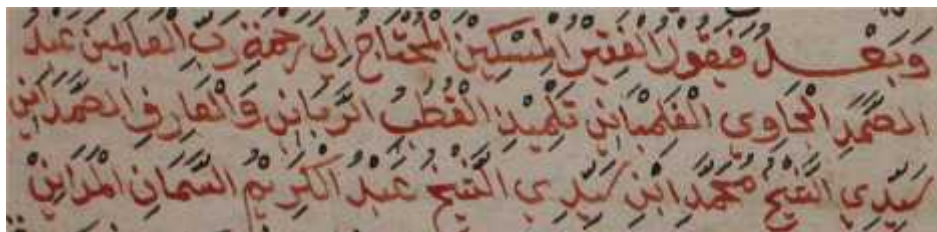 وَبَعْدُ فَيَقُوْلُ الْفَقِيْرُ الْمِسْكِيْنُ الْمُحْتَاجُ اِلَى رَحْمَةِ رَبِّ الْعَالَمِيْنَ عَبْدُ
الصَّمَدِ الْجَاوِي الْفَلِمْبَانِيْ تِلْمِيْذِ الْقُطْبِ الرَّبَّانِيْ وَالْعَارِفِ الصَّمَدَانِيْ
سَيِّدِي الشَّيْخِ مُحَمَّدِ ابْنِ سَيِّدِي الشَّيْخِ عَبْدُ الْكَرِيْمِ السَّمَّانِ الْمَدَانِيْ